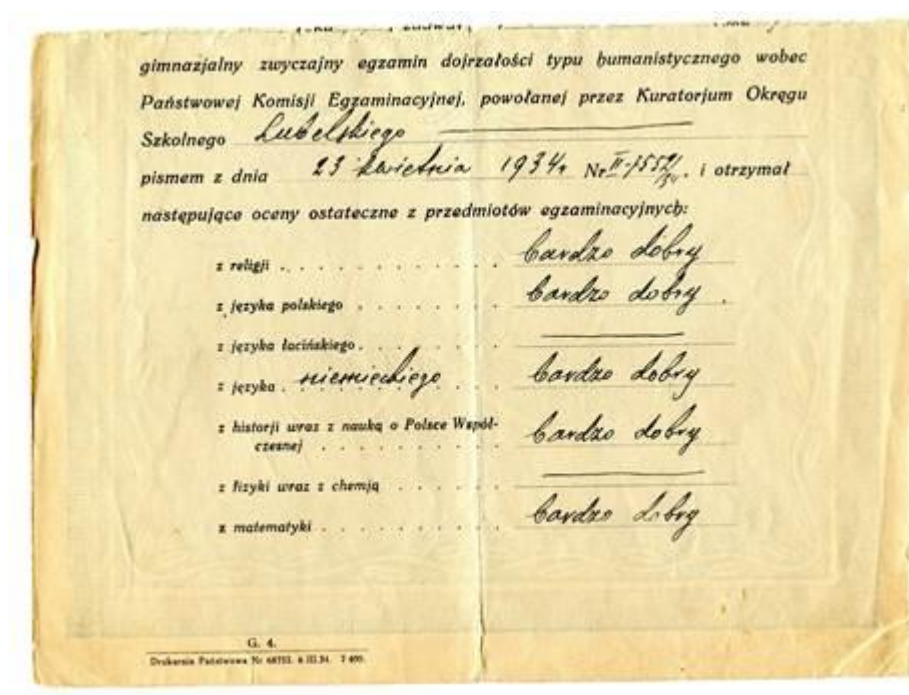 gimnazjalny zwyczajny egzamin dojrzałości typu humanistycznego wobec
Państwowej Komisji Egzaminacyjnej, powołanej przez Kuratorjum Okręgu
Szkolnego Lubelskiego
pismem z dnia 23 kwietnia 1934 r. Nr II-1552/34. i otrzymał
następujące oceny ostateczne z przedmiotów egzaminacyjnych:
z religji . . . . . . . . . . . . bardzo dobry
z języka polskiego . . . . . . . . bardzo dobry
z języka łacińskiego . . . . . . .
z języka niemieckiego . . bardzo dobry
z historji wraz z nauką o Polsce Współ-
czesnej . . . . . . . . . . bardzo dobry
z fizyki wraz z chemją . . . . . .
z matematyki . . . . . . . . . . bardzo dobry
G. 4.
Drukarnia Państwowa Nr 6.III.34.